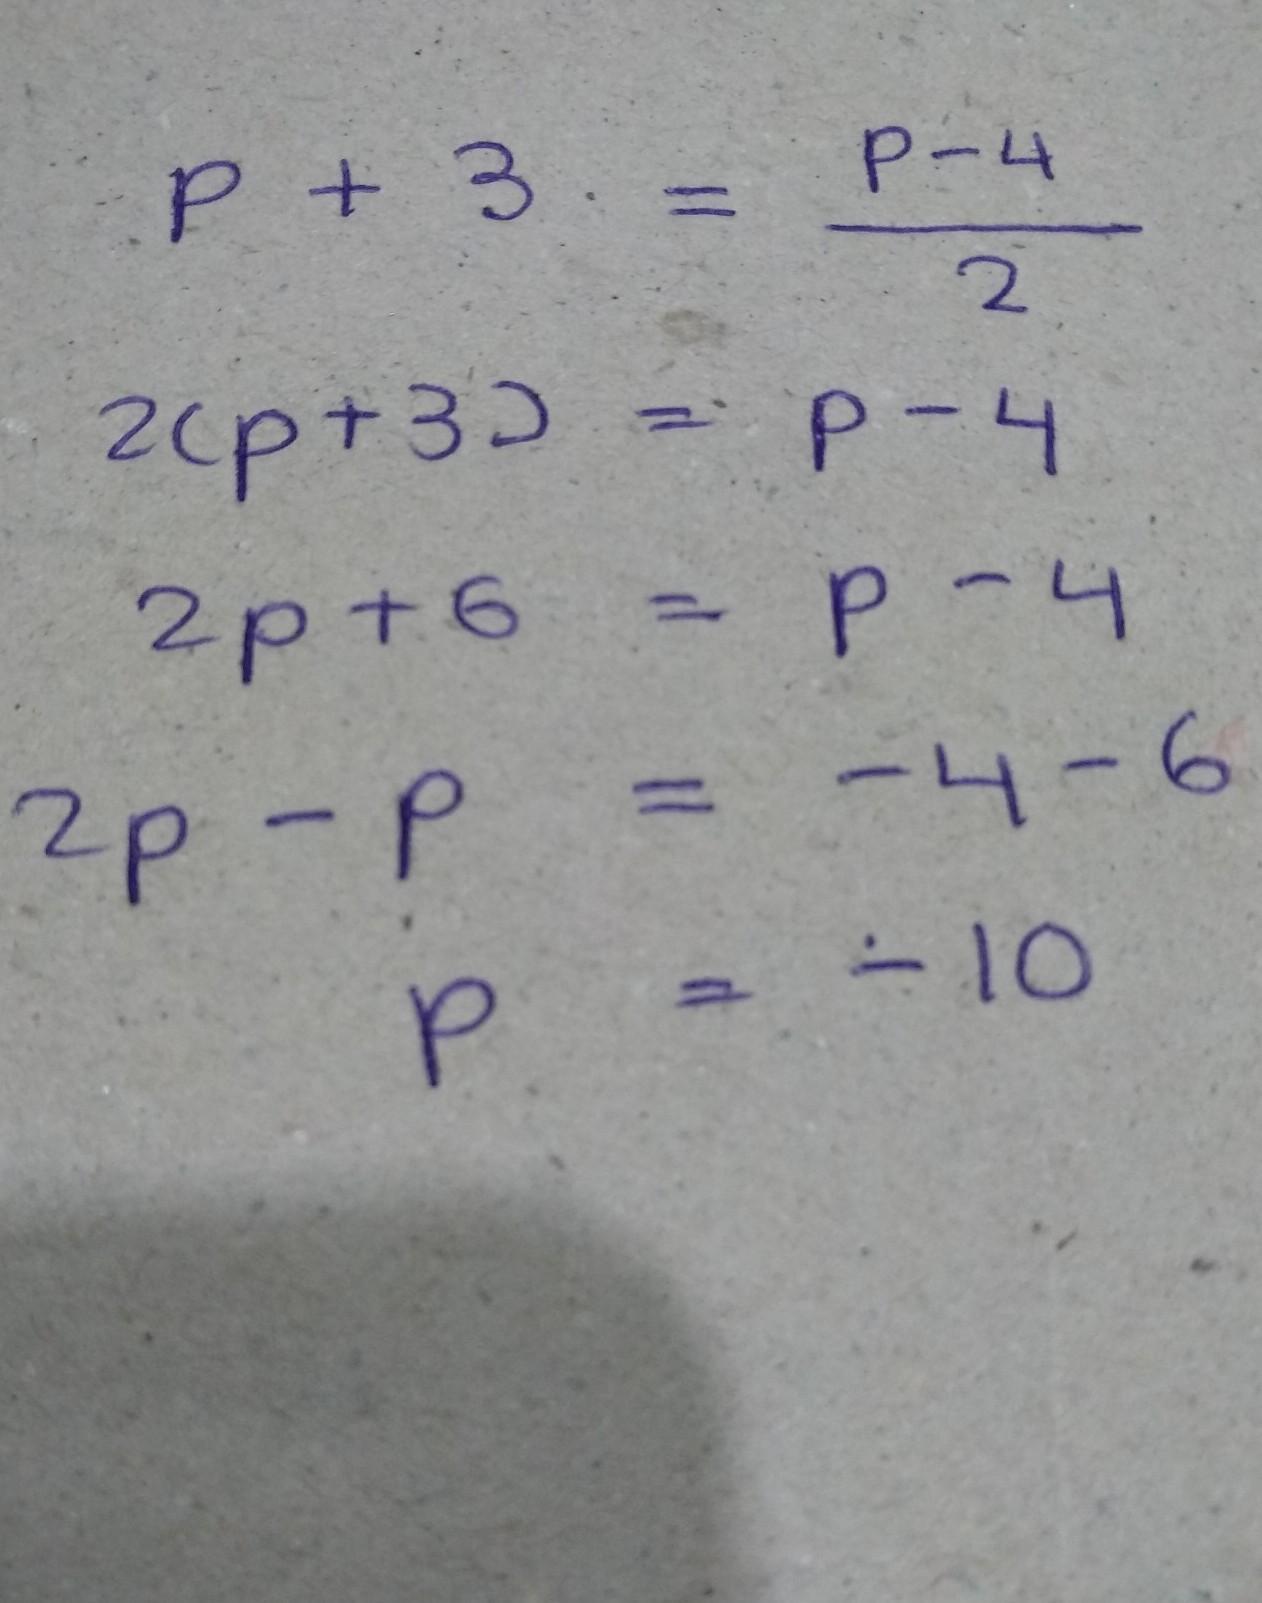 p + 3 = p - 4 / 2
2(p + 3) = p - 4
2p + 6 = p - 4
2p - p = -4 - 6
p = -10